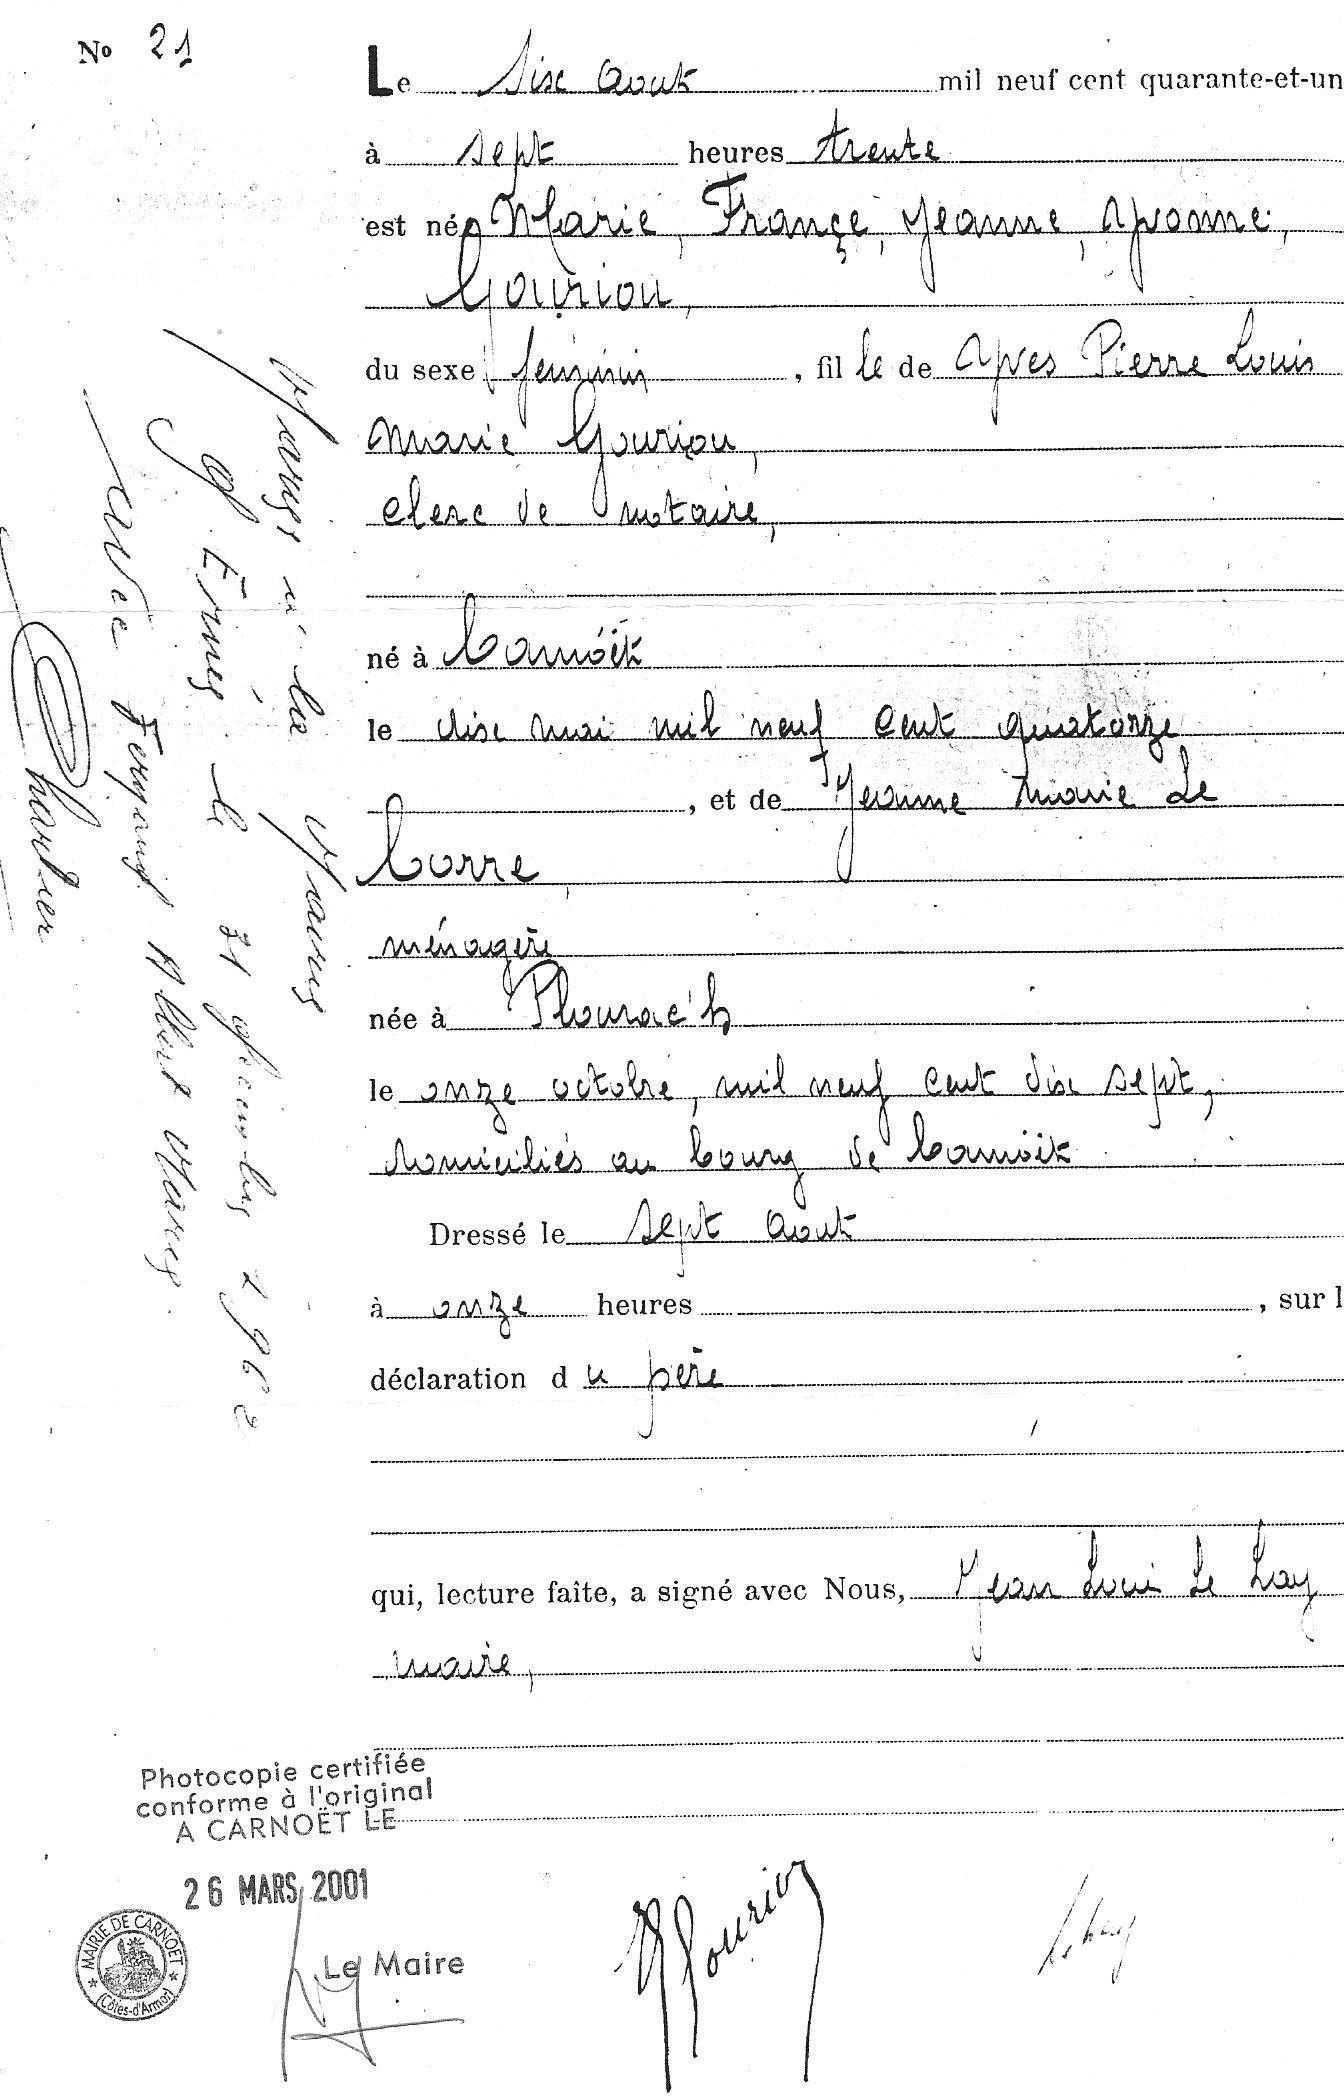 No 21
Le six aout mil neuf cent quarante-et-un
à sept heures trente
est née Marie, Françe, Jeanne, Yvonne,
Gouriou,
du sexe féminin, fille de Yves Pierre Louis
Marie Gouriou,
clerc de notaire,
né à Carnoët
le dix mai mil neuf cent quatorze
, et de Jeanne Marie Le
Corre
ménagère
née à Plourac'h
le onze octobre, mil neuf cent dix sept,
domiciliés au bourg de Carnoët
Dressé le sept aout
à onze heures , sur l
déclaration du père
qui, lecture faite, a signé avec Nous, Jean Louis Le Lay
maire,
Mariée à la Mairie
d'Ermé le 21 décembre 1962
avec Fernand Albert Marie
Charlier
Photocopie certifiée
conforme à l'original
A CARNOËT LE
26 MARS 2001
Le Maire
MAIRIE DE CARNOET
(Côtes-d'Armor)
Y Gouriou